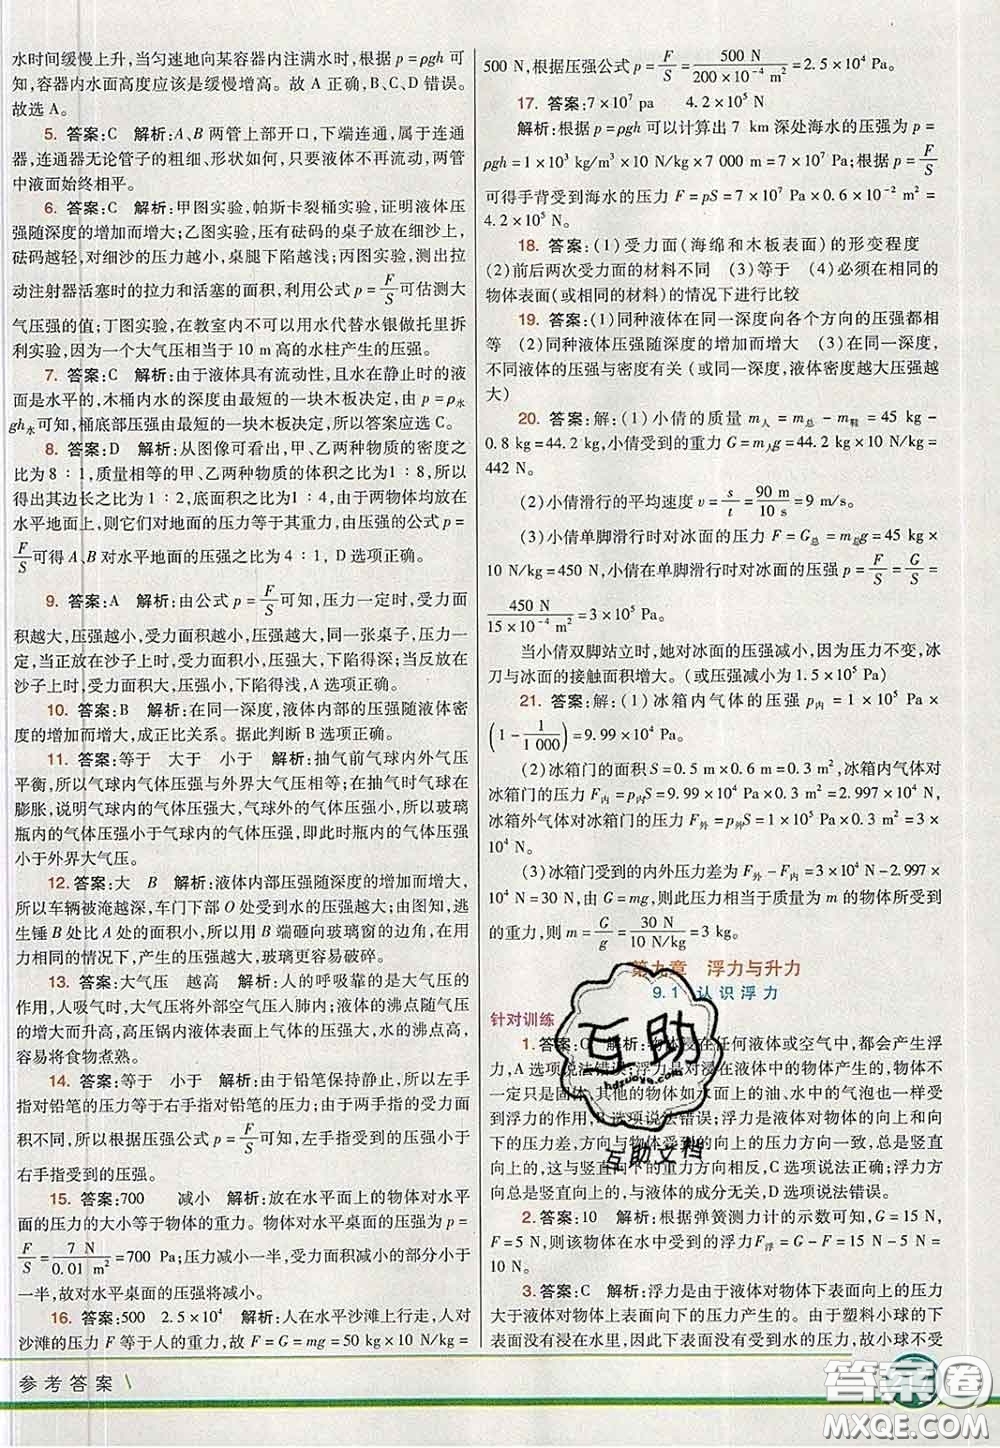 水时间缓慢上升,当匀速地向某容器内注满水时,根据 p=ρgh 可
知,容器内水面高度应该是缓慢增高。故 A 正确,B、C、D 错误。
故选 A。
5. 答案:C　解析:A、B 两管上部开口,下端连通,属于连通
器,连通器无论管子的粗细、形状如何,只要液体不再流动,两管
中液面始终相平。
6. 答案:C　解析:甲图实验,帕斯卡裂桶实验,证明液体压
强随深度的增加而增大;乙图实验,压有砝码的桌子放在细沙上,
砝码越轻,对细沙的压力越小,桌腿下陷越浅;丙图实验,测出拉
动注射器活塞时的拉力和活塞的面积,利用公式 p=F/S 可估测大
气压强的值;丁图实验,在教室内可以用水代替水银做托里拆
利实验,因为一个大气压相当于 10 m高的水柱产生的压强。
7. 答案:C　解析:由于液体具有流动性,且水在静止时的液
面是水平的,木桶内水的深度由最短的一块木板决定,由 p=ρ水
gh水可知,桶底部压强由最短的一块木板决定,所以答案应选 C。
8. 答案:D　解析:从图像可看出,甲、乙两种物质的密度之
比为 8∶1,质量相等的甲、乙两种物质的体积之比为 1∶8,所以
得出其边长之比为 1∶2,底面积之比为 1∶4,由于两物体均放在
水平地面上,则它们对地面的压力等于其重力,由压强的公式 p=
F/S可得 A、B 对水平地面的压强之比为 4∶1,D 选项正确。
9. 答案:A　解析:由公式 p=F/S可知,压力一定时,受力面
积越大,压强越小,受力面积越小,压强越大,同一张桌子,压力一
定,当正放在沙子上时,受力面积小,压强大,下陷得深;当反放在
沙子上时,受力面积大,压强小,下陷得浅,A 选项正确。
10. 答案:B　解析:在同一深度,液体内部的压强随液体密
度的增加而增大,成正比关系。据此判断 B 选项正确。
11. 答案:等于　大于　小于　解析:抽气前气球内外气压
平衡,所以气球内气体压强与外界大气压相等;在抽气时气球在
膨胀,说明气球内的气体压强大,气球外的气体压强小,所以玻璃
瓶内的气体压强小于气球内的气体压强,即此时瓶内的气体压强
小于外界大气压。
12. 答案:大　B　解析:液体内部压强随深度的增加而增大,
所以车辆被淹越深,车门下部 O 处受到水的压强越大;由图知,逃
生锤 B 处比 A 处的面积小,所以用 B 端砸向玻璃窗的四角,在用
力相同的情况下,产生的压强越大,玻璃更容易破碎。
13. 答案:大气压　越高　解析:人的呼吸靠的是大气压的
作用,人吸气时,大气压将外部空气压入肺内;液体的沸点随气压
的增大而升高,高压锅内液体表面上气体的压强大,水的沸点高,
容易将食物煮熟。
14. 答案:等于　小于　解析:由于铅笔保持静止,所以左手
指对铅笔的压力等于右手指对铅笔的压力,由于两手指的受力面
积不同,所以根据压强公式 p=F/S可知,左手指受到的压强小于
右手指受到的压强。
15. 答案:700　减小　解析:放在水平面上的物体对水平
面的压力的大小等于物体的重力。物体对水平桌面的压强 p=
F/S=7 N/0.01 m²=700 Pa;压力减小一半,受力面积减小的部分小于
一半,故对水平桌面的压强将减小。
16. 答案:500　2.5×10⁴　解析:人在水平沙滩上行走,人对
沙滩的压力 F 等于人的重力,故 F=G=mg=50 kg×10 N/kg=
500 N,根据压强公式 p=F/S=500 N/(200×10⁻⁴ m²)=2.5×10⁴ Pa。
17. 答案:7×10⁷ pa　4.2×10⁵ N
解析:根据 p=ρgh 可以计算出 7 km 深处海水的压强为 p=
ρgh=1×10³ kg/m³×10 N/kg×7 000 m=7×10⁷ Pa;根据 p=F/S
可得手背受到海水的压力 F=pS=7×10⁷ Pa×0.6×10⁻² m²=
4.2×10⁵ N。
18. 答案:(1)受力面(海绵和木板表面)的形变程度
(2)前后两次受力面的材料不同　(3)等于　(4)必须在相同的
物体表面(或相同的材料)的情况下进行比较
19. 答案:(1)同种液体在同一深度向各个方向的压强都相
等　(2)同种液体压强随深度的增加而增大　(3)在同一深度,
不同液体的压强与密度有关(或同一深度,液体密度越大压强越
大)
20. 答案:解:(1)小倩的质量 m人=m总-m鞋=45 kg-
0.8 kg=44.2 kg,小倩受到的重力 G=m人g=44.2 kg×10 N/kg=
442 N。
(2)小倩滑行的平均速度 v=s/t=90 m/10 s=9 m/s。
(3)小倩单脚滑行时对冰面的压力 F=G总=m总g=45 kg×
10 N/kg=450 N,小倩在单脚滑行时对冰面的压强 p=F/S=G/S=
450 N/(15×10⁻⁴ m²)=3×10⁵ Pa。
当小倩双脚站立时,她对冰面的压强减小,因为压力不变,冰
刀与冰面的接触面积增大。(或压强减小为 1.5×10⁵ Pa)
21. 答案:解:(1)冰箱内气体的压强 p内=1×10⁵ Pa×
(1-1/1 000)=9.99×10⁴ Pa。
(2)冰箱门的面积 S=0.5 m×0.6 m=0.3 m²,冰箱内气体对
冰箱门的压力 F内=p内S=9.99×10⁴ Pa×0.3 m²=2.997×10⁴ N,
冰箱外气体对冰箱门的压力 F外=p外S=1×10⁵ Pa×0.3 m²=3×
10⁴ N。
(3)冰箱门受到的内外压力差为 F外-F内=3×10⁴ N-2.997
×10⁴ N=30 N,由 G=mg,则此压力相当于质量为 m 的物体所受到
的重力,则 m=G/g=30 N/10 N/kg=3 kg。
第九章　浮力与升力
9.1　认识浮力
针对训练
1. 答案:C　解析:物体浸在任何液体或空气中,都会产生浮
力,A 选项说法错误;浮力是对浸在液体中的所有物体来说的,不
一定是固体,其他的物体如水面上的油、水中的气泡也一样受
到浮力的作用,B 选项说法错误;浮力是液体对物体的向上和向
下的压力差,方向与物体受到的向上的压力方向一致,总是竖直
向上的,C 选项说法正确;浮力方向与物体受到的向上的压力方
向总是竖直向上的,与液体的成分无关,D 选项说法错误。
2. 答案:10　解析:根据弹簧测力计的示数可知,G=15 N,
F=5 N,则该物体在水中受到的浮力 F浮=G-F=15 N-5 N=
10 N。
3. 答案:C　解析:浮力是由于液体对物体下表面向上的压力
大于液体对物体上表面向下的压力产生的。由于塑料小球的下
表面没有浸在水里,因此下表面没有受到水的压力,故小球不受
参考答案
互助
hdzuoye.com
互助文档
答案圈
MXQE.COM